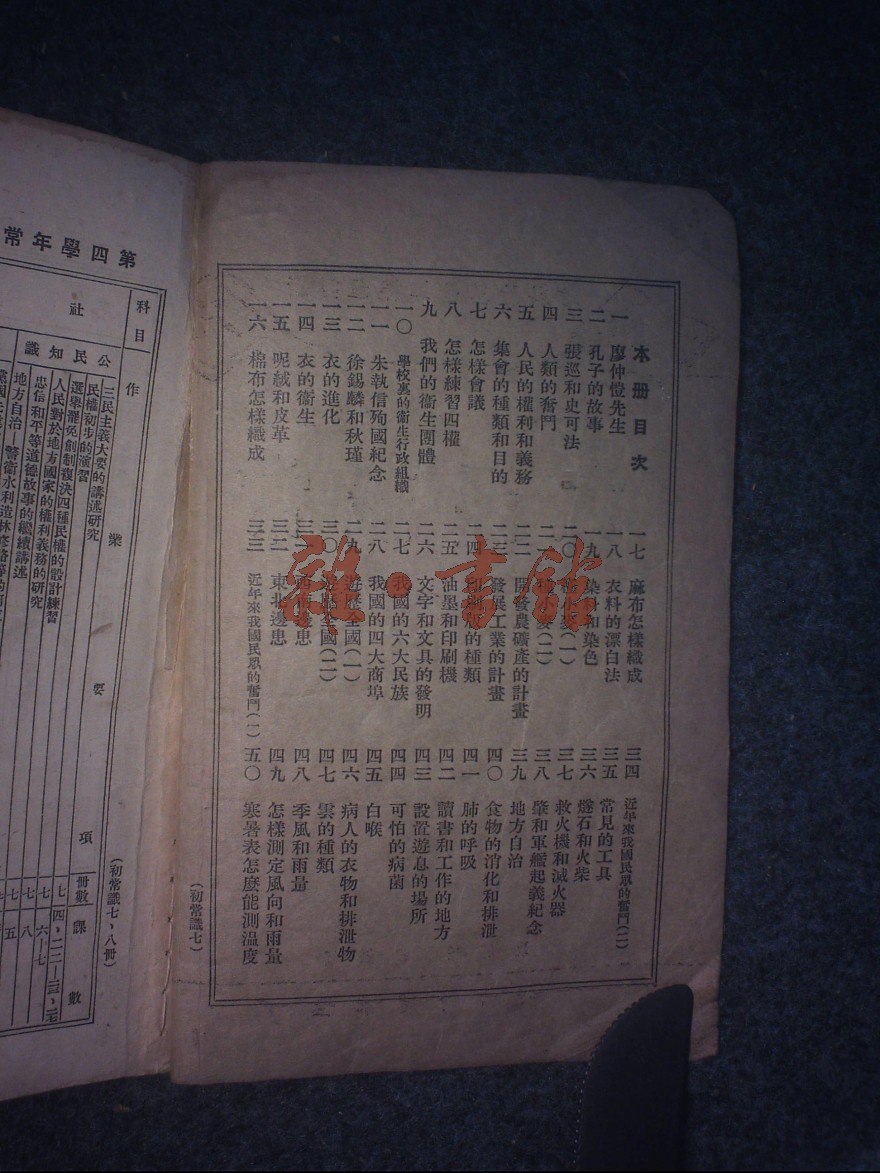 本冊目次
一 廖仲愷先生
二 孔子的故事
三 張巡和史可法
四 人類的奮鬥
五 人民的權利和義務
六 集會的種類和目的
七 怎樣會議
八 怎樣練習四權
九 我們的衞生團體
一〇 學校裏的衞生行政組織
一一 朱執信殉國紀念
一二 徐錫麟和秋瑾
一三 衣的進化
一四 衣的衞生
一五 呢絨和皮革
一六 棉布怎樣織成
一七 麻布怎樣織成
一八 衣料的漂白法
一九 染料和染色
二〇 (一)
二一 (二)
二二 開發農礦產的計畫
二三 發展工業的計畫
二四 印刷版的種類
二五 油墨和印刷機
二六 文字和文具的發明
二七 我國的六大民族
二八 我國的四大商埠
二九 遊歷全國(一)
三〇 遊歷全國(二)
三一 西南邊患
三二 東北邊患
三三 近年來我國民眾的奮鬥(一)
三四 近年來我國民眾的奮鬥(二)
三五 常見的工具
三六 燧石和火柴
三七 救火機和滅火器
三八 肇和軍艦起義紀念
三九 地方自治
四〇 食物的消化和排泄
四一 肺的呼吸
四二 讀書和工作的地方
四三 設置遊息的場所
四四 可怕的病菌
四五 白喉
四六 病人的衣物和排泄物
四七 雲的種類
四八 季風和雨量
四九 怎樣測定風向和雨量
五〇 寒暑表怎麼能測溫度
(初常識七)
第四學年常
(初常識七、八冊)
科目
作業要項
冊數
課數
社
公民知識
三民主義大要的講述研究
民權初步的演習
選舉罷免創制複決四種民權的設計練習
人民對於地方國家的權利義務的研究
忠信和平等道德故事的繼續講述
地方自治
雜·書館